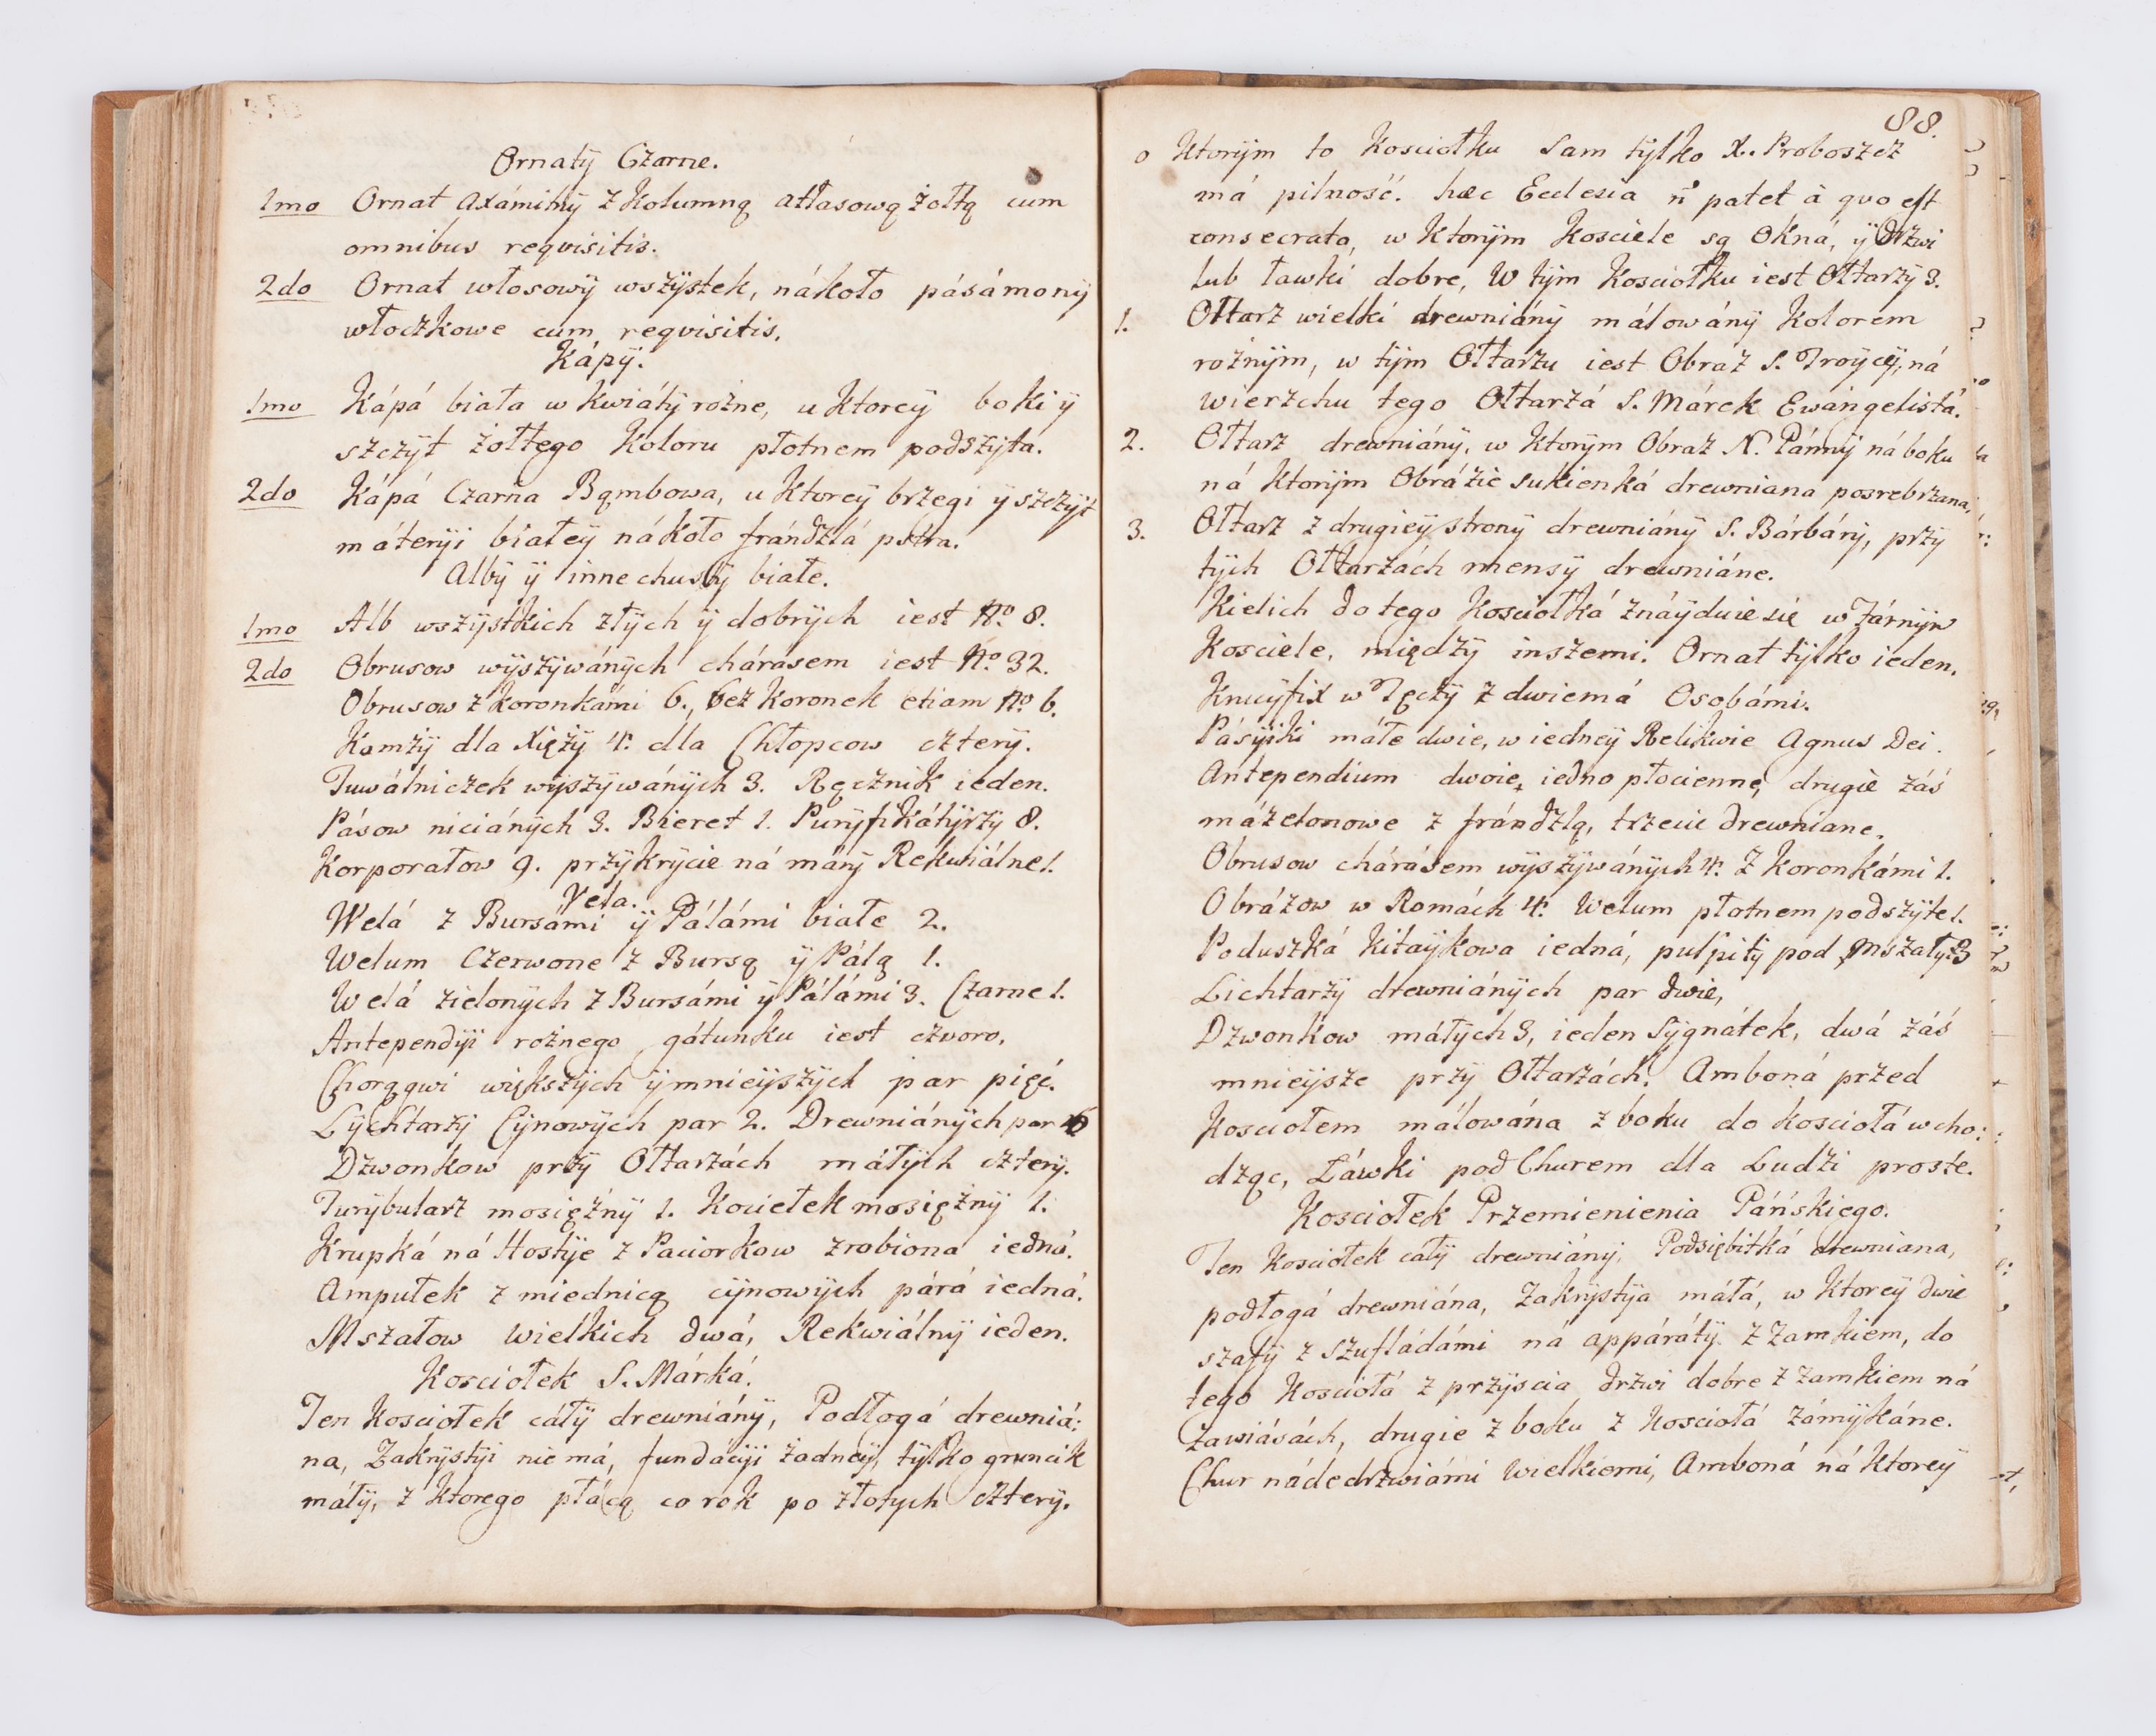 Ornaty Czarne.
1mo Ornat axámitny z Kolumną atłasową żołtą cum
omnibus reqvisitis.
2do Ornat włosowy wszystek, nákoło pásámony
włoczkowe cum reqvisitis.
Kápy.
1mo Kápá biała w kwiáty rożne, u ktorey boki y
szczyt żołtego koloru płotnem podszyta.
2do Kápá Czarna Bąmbowa, u ktorey brzegi y szczyt
máteryi białey nákoło frándzlá pstra.
Alby y inne chusty białe.
1mo Alb wszystkich złych y dobrych iest No. 8.
2do Obrusow wyszywánych chárasem iest No. 32.
Obrusow z koronkámi 6., bez Koronek etiam No. 6.
Komży dla Xięży 4. dla Chłopcow cztery.
Tuwálniczek wyszywánych 3. Ręcznik ieden.
Pásow niciánych 3. Biret 1. Puryfikátyrzy 8.
Korporałow 9. przykrycie ná máry Rekwiálne 1.
Vela.
Welá z Bursámi y Pálámi białe 2.
Welum Czerwone z Bursą y Pálą 1.
Welá zielonych z Bursámi y Pálámi 3. Czarne 1.
Antependyi rożnego gátunku iest czworo.
Chorągwi większych y mnieyszych par pięć.
Lychtarzy Cynowych par 2. Drewniánych par 6
Dzwonkow przy Ołtarzách máłych cztery.
Turybularz mosiężny 1. Kociełek mosiężny 1.
Krupká ná Hostye z Paciorkow zrobiona iedná.
Ampułek z miednicą cynowych párá iedná.
Mszałow wielkich dwá, Rekwiálny ieden.
Kosciołek S. Márká.
Ten Kosciołek cáły drewniány, Podłogá drewniá:
na, Zakrystyi nie má, fundácyi żadney, tylko gruncik
máły, z ktorego płácą co rok po złotych cztery.
88.
o ktorym to Kosciołku sam tylko X. Proboszcz
má pilność. hæc Ecclesia ñ patet à qvo est
consecrata, w ktorym Kosciele są Okná, y Drzwi
lub ławki dobre, W tym Kosciołku iest Ołtarzy 3.
1. Ołtarz wielki drewniány málowány Kolorem
rożnym, w tym Ołtarzu iest Obraz S. Troycy, ná
wierzchu tego Ołtarzá S. Márek Ewángelistá.
2. Ołtarz drewniány, w ktorym Obraz N. Pánny ná boku
ná ktorym Obrázie sukienká drewniana posrebrzana,
3. Ołtarz z drugiey strony drewniány S. Bárbáry, przy
tych Ołtarzách mensy drewniáne.
Kielich do tego Kosciołká znáyduie się w Fárnym
Kosciele, między inszemi. Ornat tylko ieden.
Krucyfix w Tęczy z dwiemá Osobámi.
Pásyiki małe dwie, w iedney Relikwie Agnus Dei.
Antependium dwoie, iedno płocienne, drugie záś
mázelonowe z frándzlą, trzecie drewniane.
Obrusow chárásem wyszywánych 4. Z koronkámi 1.
Obrázow w Ramách 4. Welum płotnem podszyte 1.
Poduszká kitaykowa iedná, pulpity pod Mszały 3
Lichtarzy drewniánych par dwie,
Dzwonkow máłych 3, ieden Sygnátek, dwá záś
mnieysze przy Ołtarzách. Amboná przed
Kosciołem málowána z boku do kosciołá wcho:
dząc, Ławki pod Churem dla Ludzi proste.
Kosciołek Przemienienia Páńskiego.
Ten Kosciołek cáły drewniány, Podsiębitká drewniana,
podłogá drewniána, Zakrystya máłá, w ktorey dwie
szafy z szufládámi ná appáráty z zamkiem, do
tego Kosciołá z przyscia drzwi dobre z zamkiem ná
zawiásách, drugie z boku z kosciołá zámykáne.
Chur náde drzwiámi wielkiemi, Amboná ná ktorey